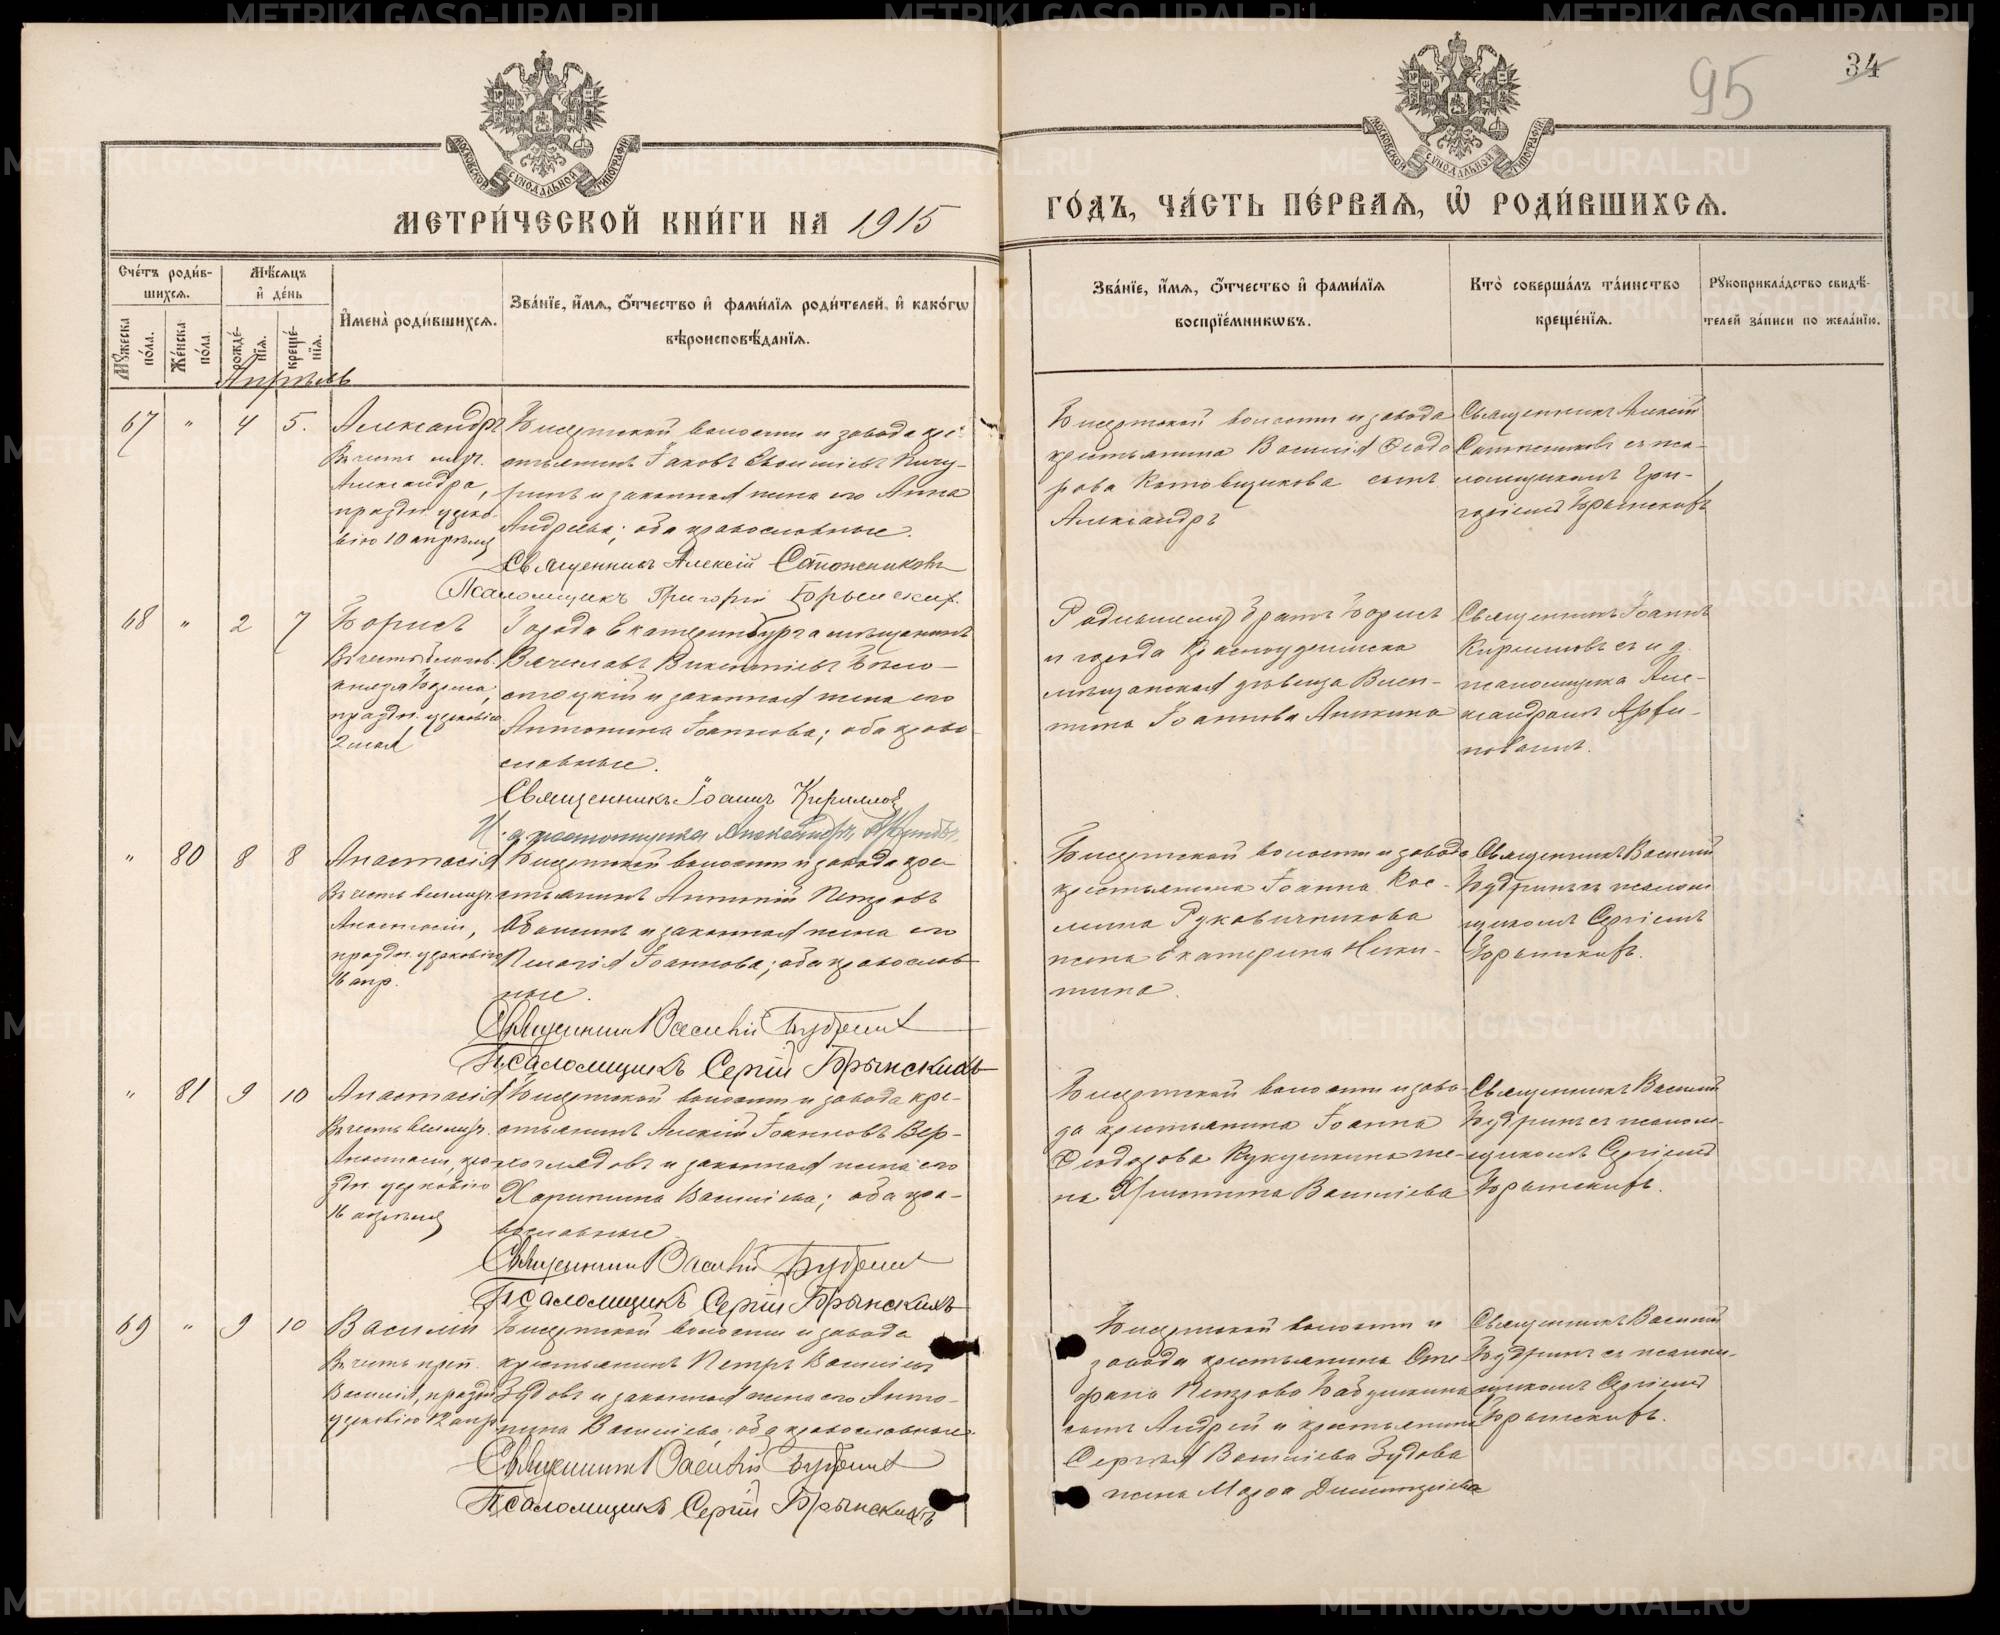 95
34
МЕТРИ́ЧЕСКОЙ КНИ́ГИ НА 1915
ГО́ДЪ, ЧА́СТЬ ПЕ́РВАЯ, Ѿ РОДИ́ВШИХСЯ.
Сче́тъ роди́в-
шихся.
Мѣ́сяцъ
и҆ де́нь
Мꙋ́жеска
по́ла.
Же́нска
по́ла
рожде́-
нїя.
креще́-
нїя.
И҆мена̀ роди́вшихся.
Зва́нїе, и҆́мя, ѻ҆́тчество и҆ фами́лїя роди́телей, и҆ како́гѡ
вѣроисповѣ́данїя.
Зва́нїе, и҆́мя, ѻ҆́тчество и҆ фами́лїя
воспрїе́мникѡвъ.
Кто̀ соверша́лъ та́инство
креще́нїя.
Рꙋкоприкла́дство свидѣ́-
телей за́писи по жела́нїю.
Апрѣль
67 " 4 5.
Александръ
Въ честь муч.
Александра,
праздн. церко-
вію 10 апрѣля
Бисертской волости и завода кре-
стьянинъ Іаковъ
и законная жена его Анна
Андреева; оба православные.
Священникъ Алексій Сапожниковъ
Псаломщикъ Григорій Брынскихъ.
Бисертской волости и завода
крестьянина Василія Ѳеодо
рова Котовщикова сынъ
Александръ
Священникъ Алексій
Сапожниковъ съ пса-
ломщикомъ Гри-
горіемъ Брынскихъ
68 " 2 7
Борисъ
Въ честь благов.
князя Бориса,
праздн. церковію
2 мая
Города Екатеринбурга мѣщанинъ
Вячеславъ Викентіевъ Бѣло-
и законная жена его
Антонина Іоаннова; оба право-
славные.
Священникъ Іоаннъ Кирилловъ
И. д. псаломщика Александръ
Родившемуся братъ Борисъ
и города Красноуфимска
мѣщанская дѣвица Валентина Іоаннова Аникина
Священникъ Іоаннъ
Кирилловъ съ и. д.
псаломщика Але-
ксандромъ
" 80 8 8
Анастасія
Въ честь великомуч.
Анастасіи,
праздн. церковію
16 апр.
Бисертской волости и завода кре-
стьянинъ Антоній Петровъ
и законная жена его
Пелагія Іоаннова; оба православ-
ные.
Священникъ Василій Будринъ
Псаломщикъ Сергій Брынскихъ
Бисертской волости и завода
крестьянина Іоанна Кос-
мина Рукавичникова
жена Екатерина Ники-
тина.
Священникъ Василій
Будринъ съ псалом
щикомъ Сергіемъ
Брынскихъ.
" 81 9 10
Анастасія
Въ честь великомуч.
Анастасіи, пра-
здн. церковію
16 апрѣля
Бисертской волости и завода кре-
стьянинъ Алексій Іоанновъ Вер-
хоглядовъ и законная жена его
Харитина Васильева; оба пра-
вославные
Священникъ Василій Будринъ
Псаломщикъ Сергій Брынскихъ
Бисертской волости и заво-
да крестьянина Іоанна
Ѳеодорова Кукушкина же-
на Христина Васильева
Священникъ Василій
Будринъ съ псалом-
щикомъ Сергіемъ
Брынскихъ.
69 " 9 10
Василій
Въ честь преп.
Василія, праздн.
церковію 12 апр.
Бисертской волости и завода
крестьянинъ Петръ Васильевъ
Зудовъ и законная жена его Анто-
нина Васильева; оба православные.
Священникъ Василій Будринъ
Псаломщикъ Сергій Брынскихъ
Бисертской волости и
завода крестьянина Сте
фана Петрова Бабушкина
сынъ Андрей и крестьянина
Сергѣя Васильева Зудова
жена Марѳа Димитріева
Священникъ Василій
Будринъ съ псалом-
щикомъ Сергіемъ
Брынскихъ.
METRIKI.GASO-URAL.RU